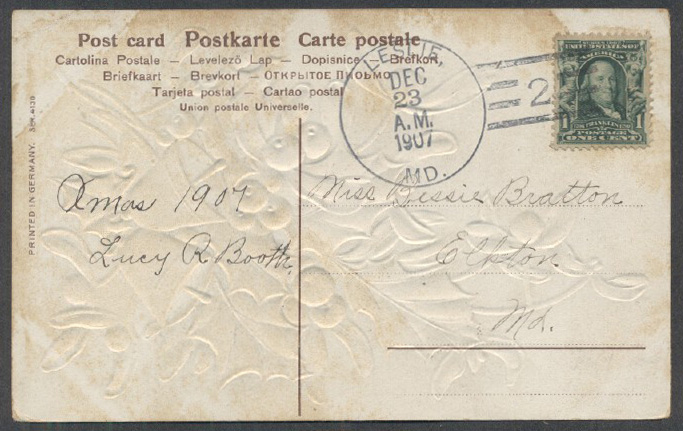 Post card Postkarte Carte postale
Cartolina Postale — Levelező Lap — Dopisnice — Brefkort
Briefkaart — Brevkort — ОТКРЫТОЕ ПИСЬМО
Tarjeta postal — Cartao postal
Union postale Universelle.
LESLIE
DEC
23
A.M.
1907
MD.
2
UNITED STATES OF
AMERICA
FRANKLIN
1 1
POSTAGE
ONE CENT
PRINTED IN GERMANY.
Xmas 1907
Lucy R Booth.
Miss Bessie Bratton
Elkton
Md.